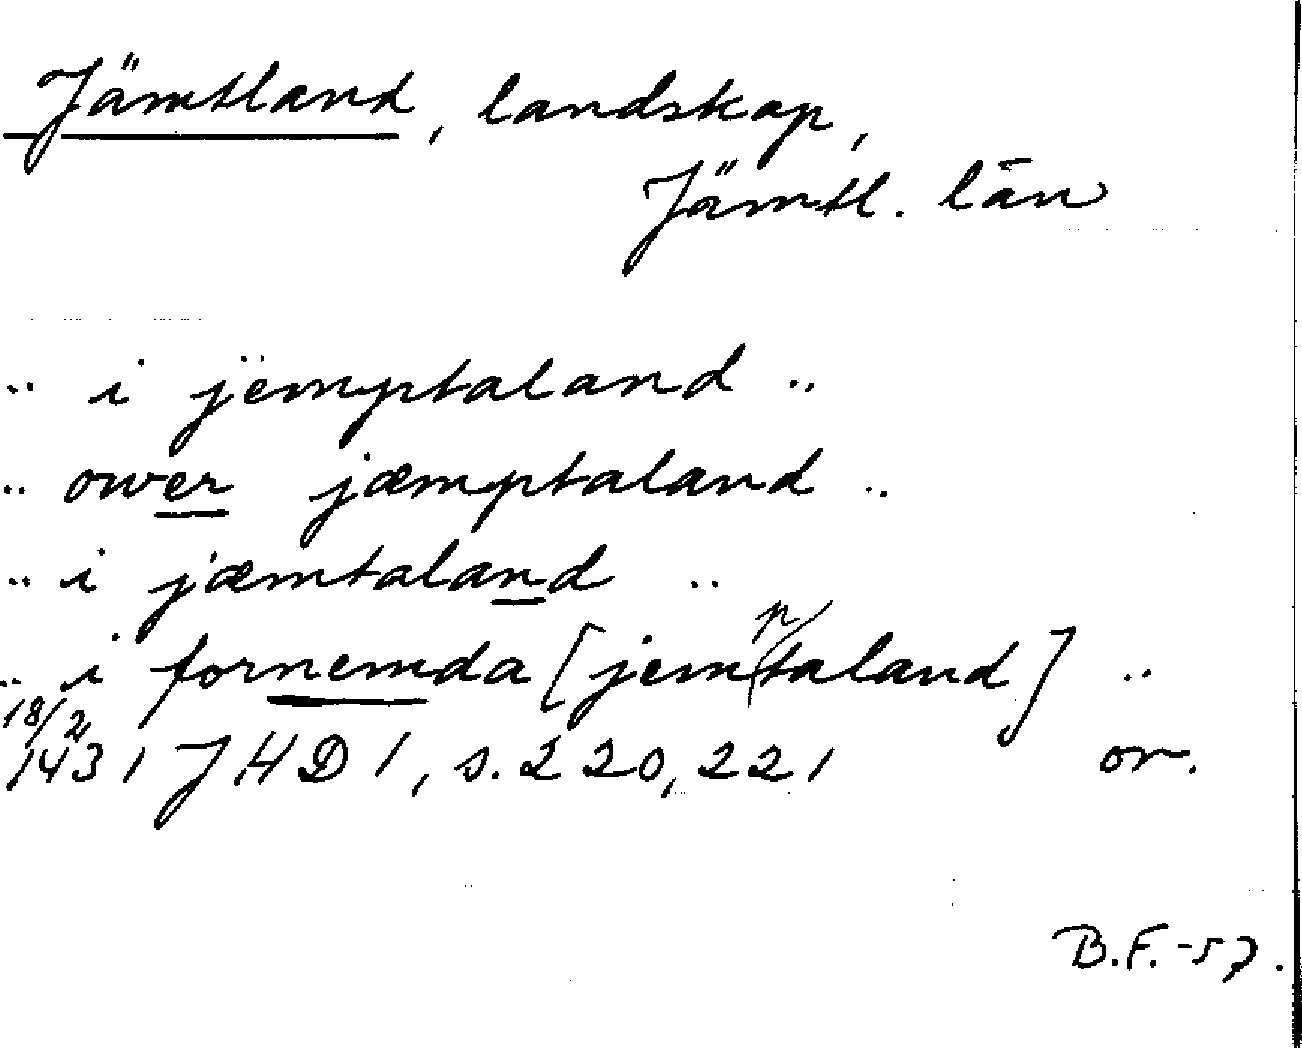 Jämtland, landskap,
Jämtl. län
.. i jëmptaland ..
.. ower jæmptaland ..
.. i jæmtaland ..
.. i fornemda [jemptaland] ..
18/2
1431 JHD 1, s. 220, 221 or.
B.F. -57.